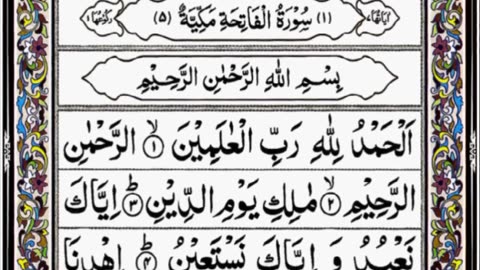 اٰيَاتُهَا ٧ (١) سُوْرَةُ الْفَاتِحَةِ مَكِّيَّةٌ (٥) رُكُوْعُهَا ١
بِسْمِ اللّٰهِ الرَّحْمٰنِ الرَّحِيْمِ
اَلْحَمْدُ لِلّٰهِ رَبِّ الْعٰلَمِيْنَ ۙ﴿١﴾ الرَّحْمٰنِ
الرَّحِيْمِ ۙ﴿٢﴾ مٰلِكِ يَوْمِ الدِّيْنِ ؕ﴿٣﴾ اِيَّاكَ
نَعْبُدُ وَ اِيَّاكَ نَسْتَعِيْنُ ؕ﴿٤﴾ اِهْدِنَا